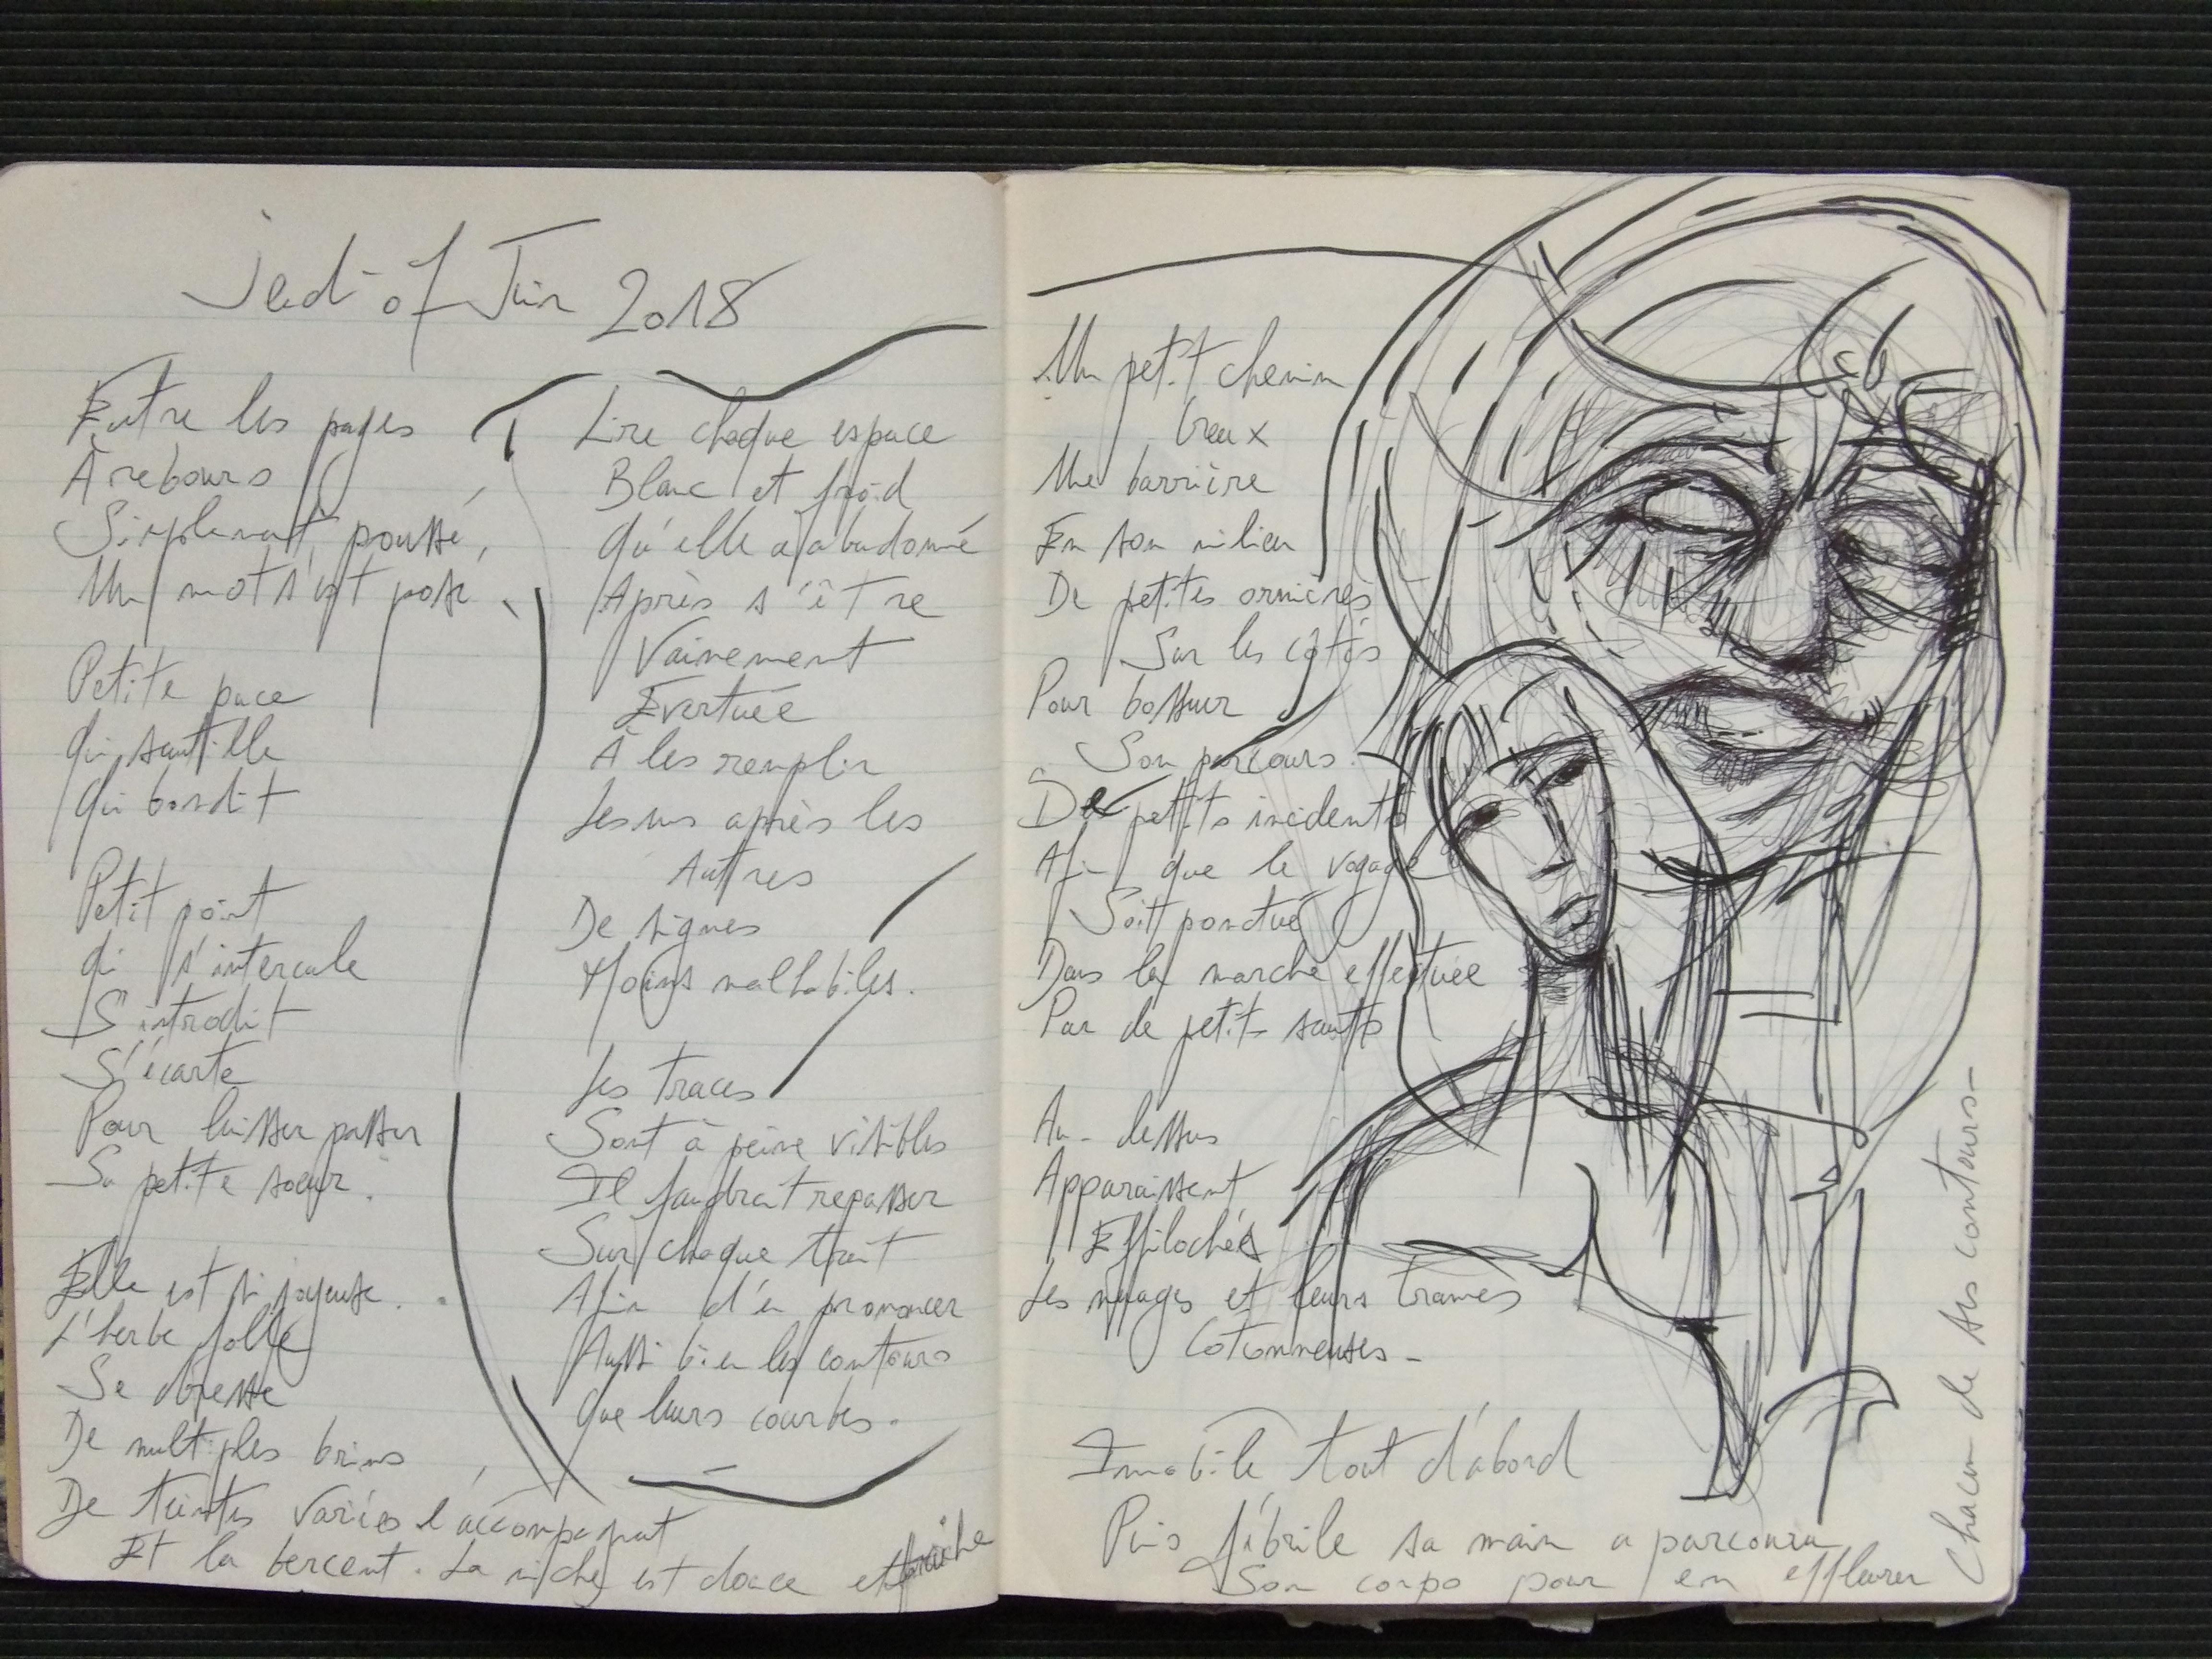 Jeudi 07 Juin 2018
Entre les pages
À rebours
Simplement poussé,
Un mot s'est posé.
Petite puce
Qui sautille
Qui bondit
Petit point
Qui s'intercale
S'introduit
S'écarte
Pour laisser passer
Sa petite soeur.
Elle est si joyeuse.
L'herbe folle
Se dresse
De multiples brins
De teintes variées l'accompagnent
Et la bercent. La niche est douce et fraîche
Lire chaque espace
Blanc et froid
Qu'elle a abandonné
Après s'être
Vainement
Evertuée
À les remplir
Les uns après les
Autres
De signes
Moins malhabiles.
Les traces
Sont à peine visibles
Il faudrait repasser
Sur chaque trait
Afin d'en prononcer
Aussi bien les contours
Que leurs courbes.
Un petit chemin
Creux
Une barrière
En son milieu
De petites ornières
Sur les côtés
Pour bossuer
Son parcours.
De petits incidents
Afin que le voyage
Soit ponctué
Dans la marche effectuée
Par de petits sauts
Au-dessus
Apparaissent
Effilochés
Les nuages et leurs trames
Cotonneuses-
Immobile tout d'abord
Puis fébrile sa main a parcouru
Son corps pour en effleurer
Chacun de ses contours-